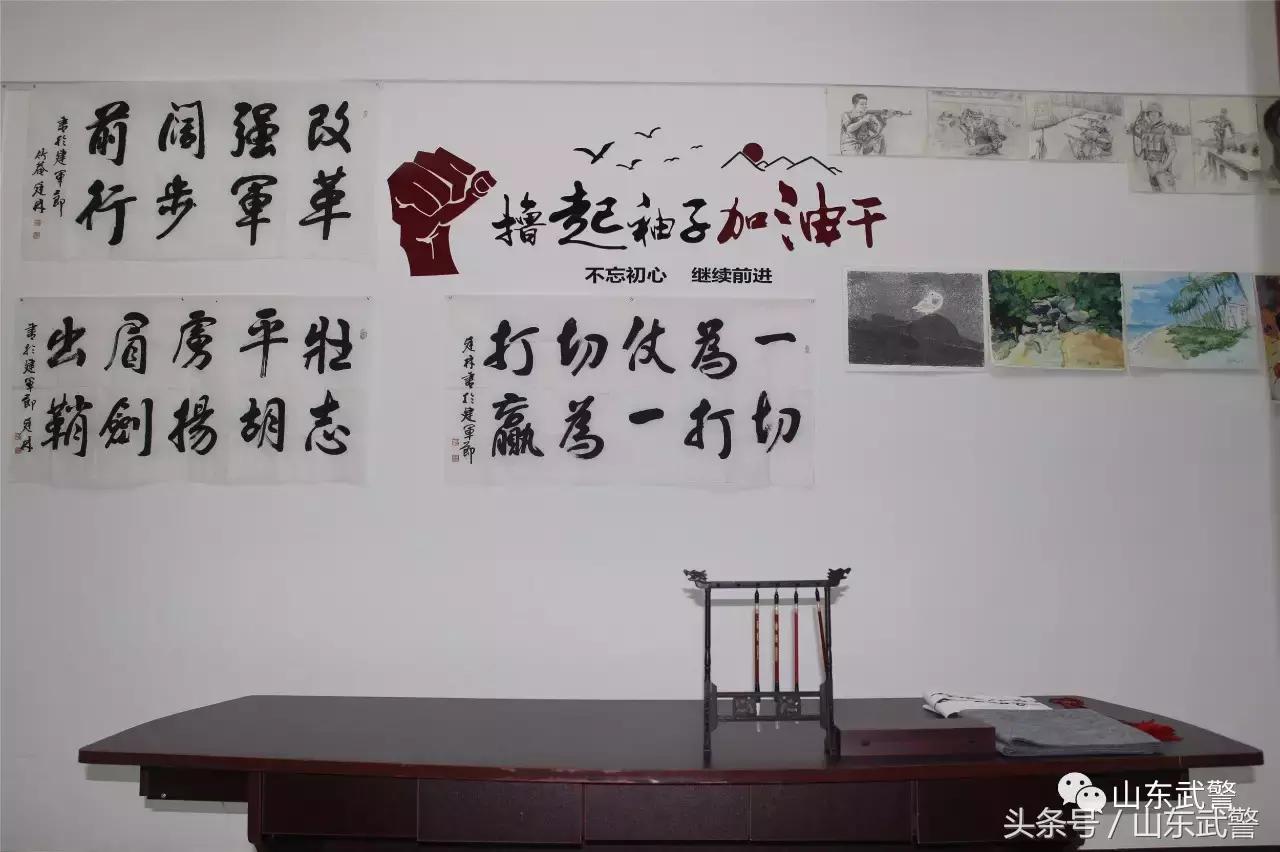 改革
强軍
阔步
前行
書於建軍節
撸起袖子加油干
不忘初心 继续前进
壯志
平胡
虏揚
眉劍
出鞘
書於建軍節 建林
一切
為打
仗一
切為
打贏
建林書於建軍節
山东武警
头条号 / 山东武警